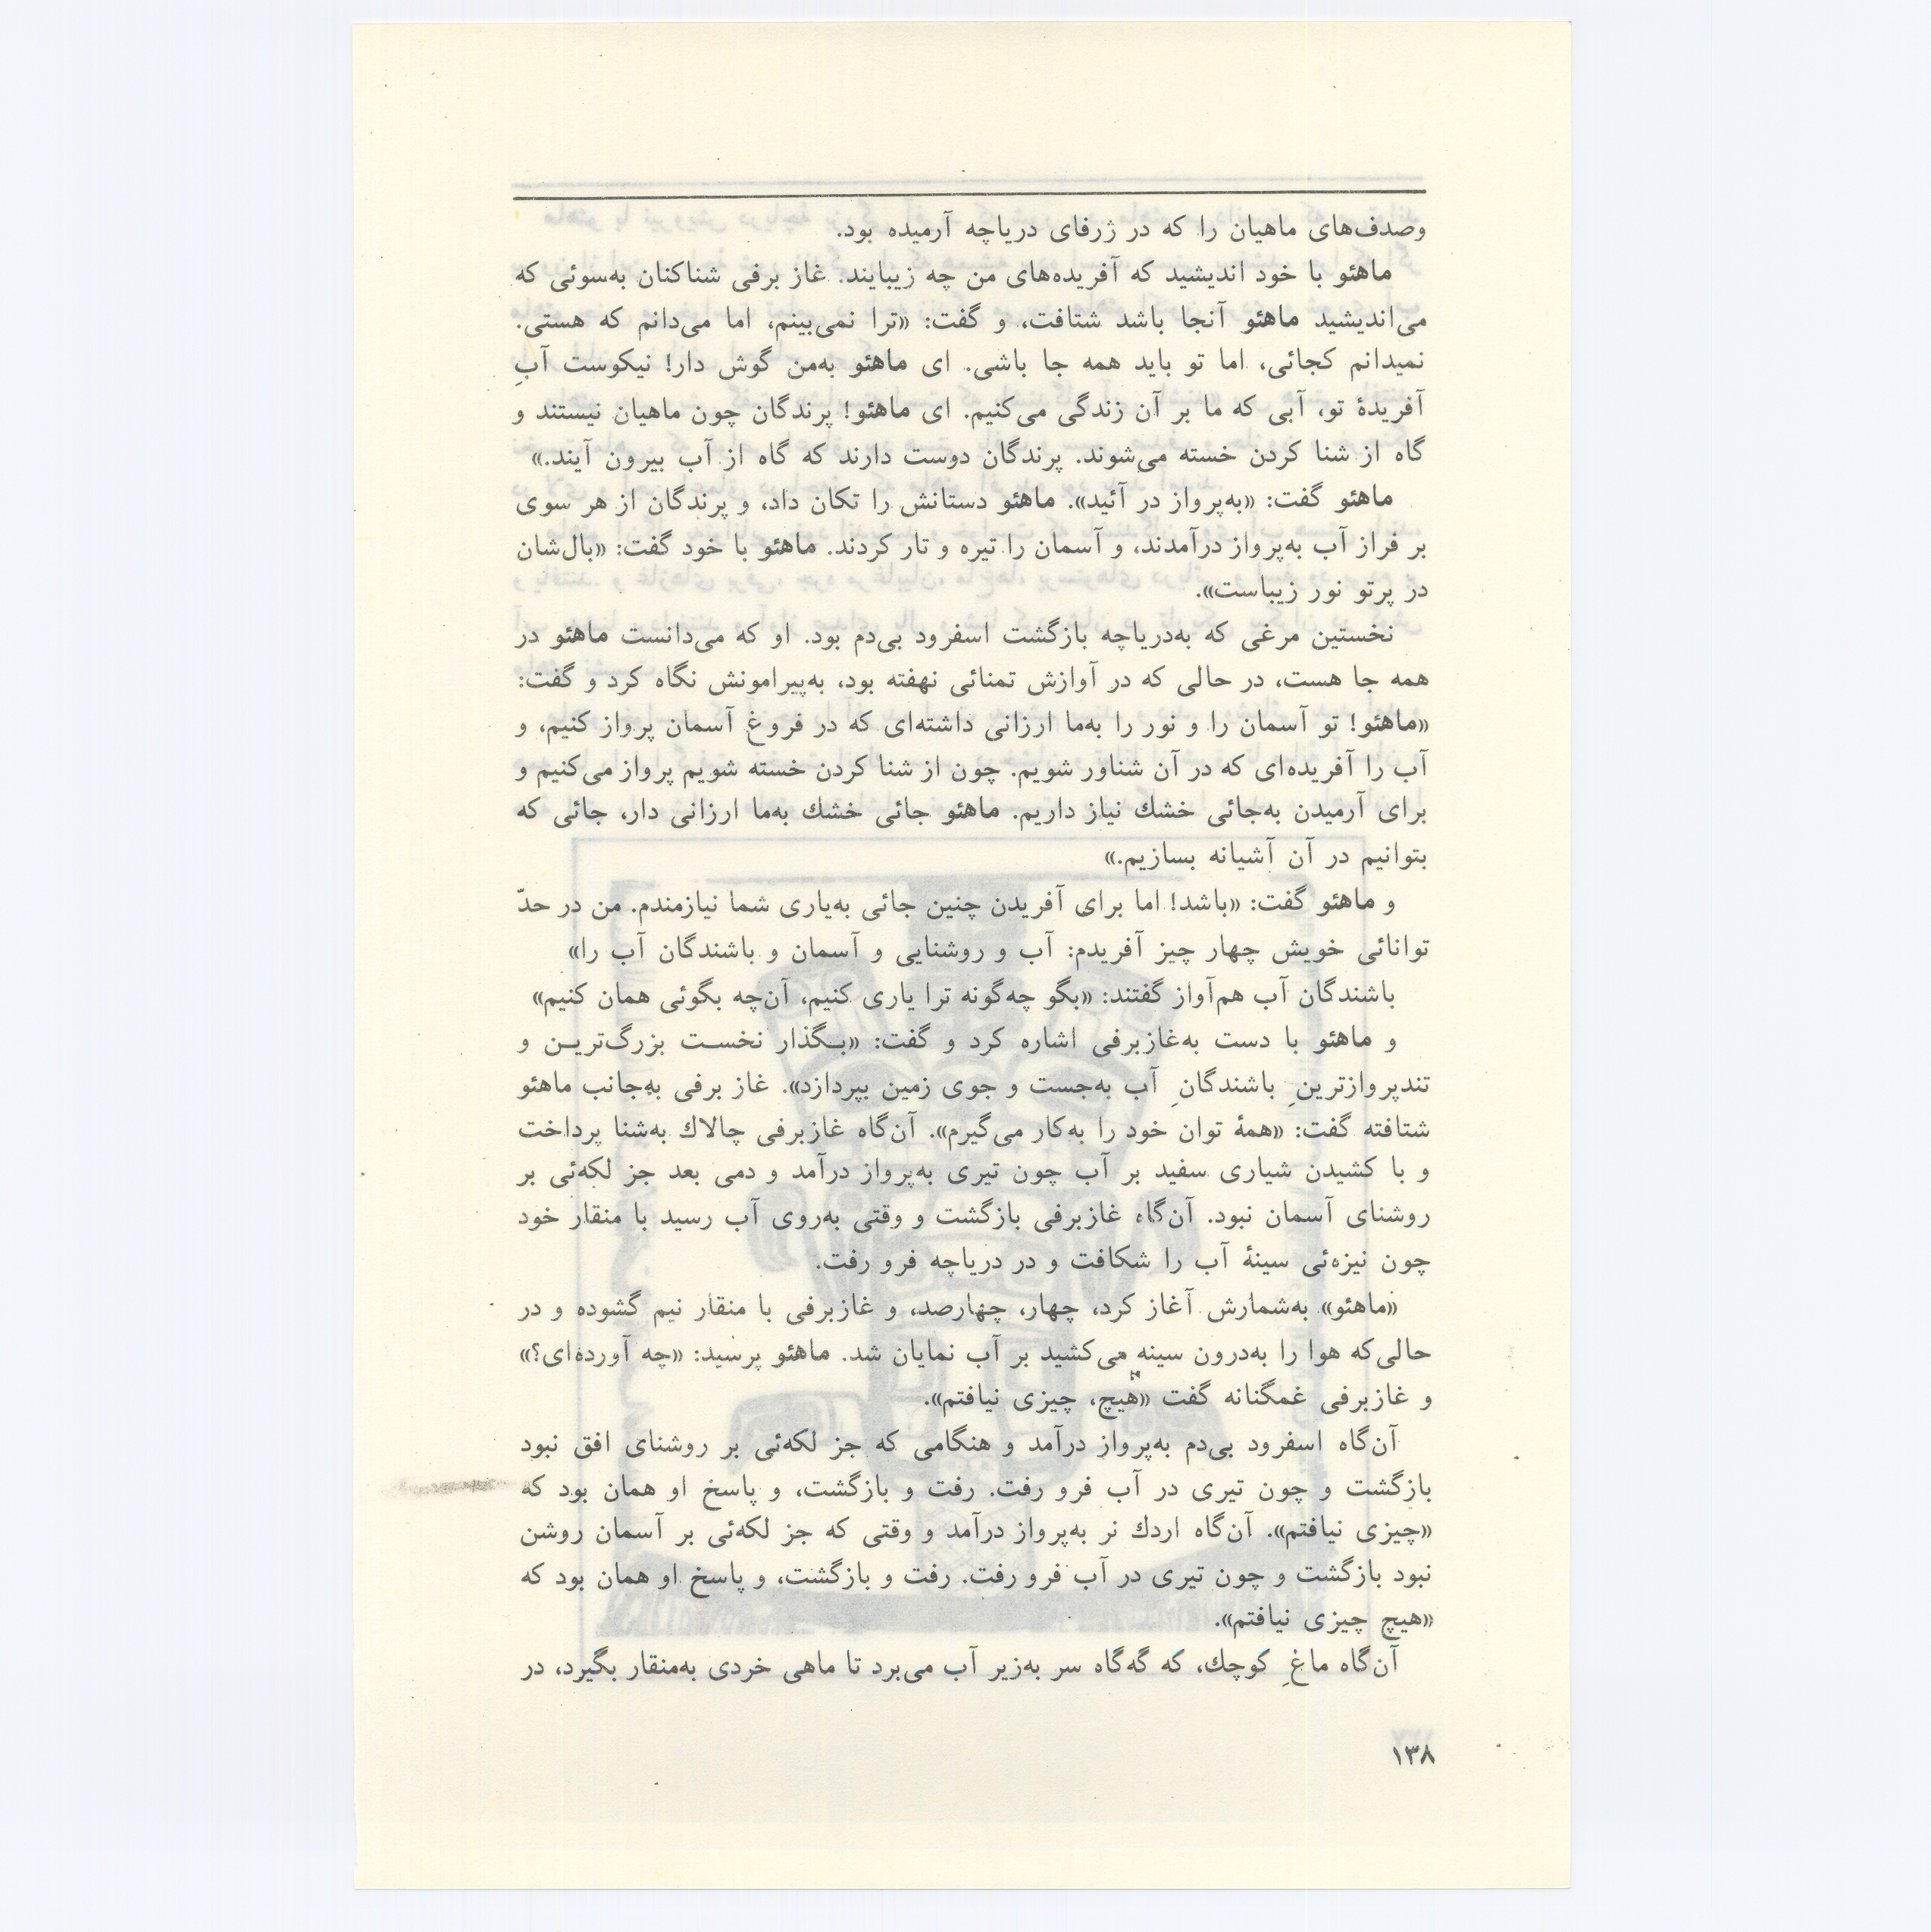 وصدف‌های ماهیان را که در ژرفای دریاچه آرمیده بود.
ماهئو با خود اندیشید که آفریده‌های من چه زیبایند. غاز برفی شناکنان به‌سوئی که
می‌اندیشید ماهئو آنجا باشد شتافت، و گفت: «ترا نمی‌بینم، اما می‌دانم که هستی.
نمیدانم کجائی، اما تو باید همه جا باشی. ای ماهئو به‌من گوش دار! نیکوست آبِ
آفریدهٔ تو، آبی که ما بر آن زندگی می‌کنیم. ای ماهئو! پرندگان چون ماهیان نیستند و
گاه از شنا کردن خسته می‌شوند. پرندگان دوست دارند که گاه از آب بیرون آیند.»
ماهئو گفت: «به‌پرواز در آئید». ماهئو دستانش را تکان داد، و پرندگان از هر سوی
بر فراز آب به‌پرواز درآمدند، و آسمان را تیره و تار کردند. ماهئو با خود گفت: «بال‌شان
در پرتو نور زیباست».
نخستین مرغی که به‌دریاچه بازگشت اسفرود بی‌دم بود. او که می‌دانست ماهئو در
همه جا هست، در حالی که در آوازش تمنائی نهفته بود، به‌پیرامونش نگاه کرد و گفت:
«ماهئو! تو آسمان را و نور را به‌ما ارزانی داشته‌ای که در فروغ آسمان پرواز کنیم، و
آب را آفریده‌ای که در آن شناور شویم. چون از شنا کردن خسته شویم پرواز می‌کنیم و
برای آرمیدن به‌جائی خشك نیاز داریم. ماهئو جائی خشك به‌ما ارزانی دار، جائی که
بتوانیم در آن آشیانه بسازیم.»
و ماهئو گفت: «باشد! اما برای آفریدن چنین جائی به‌یاری شما نیازمندم. من در حدّ
توانائی خویش چهار چیز آفریدم: آب و روشنایی و آسمان و باشندگان آب را»
باشندگان آب هم‌آواز گفتند: «بگو چه‌گونه ترا یاری کنیم، آن‌چه بگوئی همان کنیم»
و ماهئو با دست به‌غازبرفی اشاره کرد و گفت: «بـگذار نخسـت بزرگ‌تریـن و
تندپروازترینِ باشندگانِ آب به‌جست و جوی زمین بپردازد». غاز برفی به‌جانب ماهئو
شتافته گفت: «همهٔ توان خود را به‌کار می‌گیرم». آن‌گاه غازبرفی چالاك به‌شنا پرداخت
و با کشیدن شیاری سفید بر آب چون تیری به‌پرواز درآمد و دمی بعد جز لکه‌ئی بر
روشنای آسمان نبود. آن‌گاه غازبرفی بازگشت و وقتی به‌روی آب رسید با منقار خود
چون نیزه‌ئی سینهٔ آب را شکافت و در دریاچه فرو رفت.
«ماهئو» به‌شمارش آغاز کرد، چهار، چهارصد، و غازبرفی با منقار نیم گشوده و در
حالی‌که هوا را به‌درون سینه می‌کشید بر آب نمایان شد. ماهئو پرسید: «چه آورده‌ای؟»
و غازبرفی غمگنانه گفت «هیچ، چیزی نیافتم».
آن‌گاه اسفرود بی‌دم به‌پرواز درآمد و هنگامی که جز لکه‌ئی بر روشنای افق نبود
بازگشت و چون تیری در آب فرو رفت. رفت و بازگشت، و پاسخ او همان بود که
«چیزی نیافتم». آن‌گاه اردك نر به‌پرواز درآمد و وقتی که جز لکه‌ئی بر آسمان روشن
نبود بازگشت و چون تیری در آب فرو رفت. رفت و بازگشت، و پاسخ او همان بود که
«هیچ چیزی نیافتم».
آن‌گاه ماغِ کوچك، که گه‌گاه سر به‌زیر آب می‌برد تا ماهی خردی به‌منقار بگیرد، در
۱۳۸